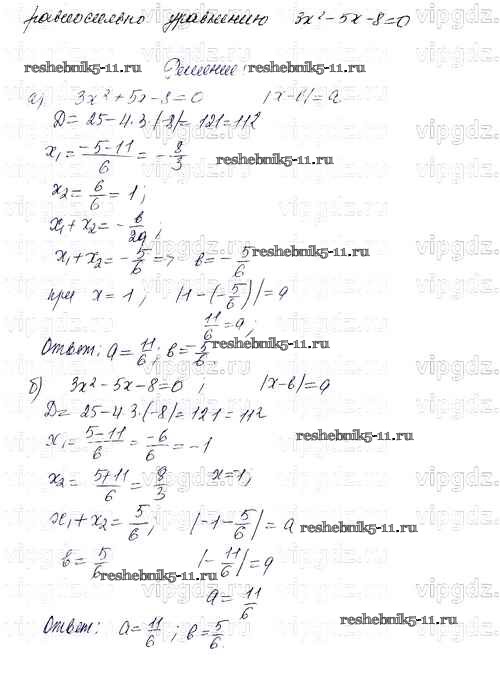 равносильно уравнению 3x² - 5x - 8 = 0
reshebnik5-11.ru Решение: reshebnik5-11.ru
а) 3x² + 5x - 8 = 0 |x - в| = a
D = 25 - 4·3·(-8) = 121 = 11²
x₁ = (-5-11)/6 = -8/3 reshebnik5-11.ru
x₂ = 6/6 = 1;
x₁ + x₂ = -в/2a;
x₁ + x₂ = -5/6 => в = -5/6 reshebnik5-11.ru
при x = 1; |1 - (-5/6)| = a
11/6 = a;
Ответ: a = 11/6; в = -5/6. reshebnik5-11.ru
б) 3x² - 5x - 8 = 0; |x - в| = a
D = 25 - 4·3·(-8) = 121 = 11²
x₁ = (5-11)/6 = -6/6 = -1 reshebnik5-11.ru
x₂ = (5+11)/6 = 8/3 x = -1;
x₁ + x₂ = 5/6; |-1 - 5/6| = a reshebnik5-11.ru
в = 5/6 |-11/6| = a
reshebnik5-11.ru
a = 11/6
Ответ: a = 11/6; в = 5/6. reshebnik5-11.ru
vipgdz.ru